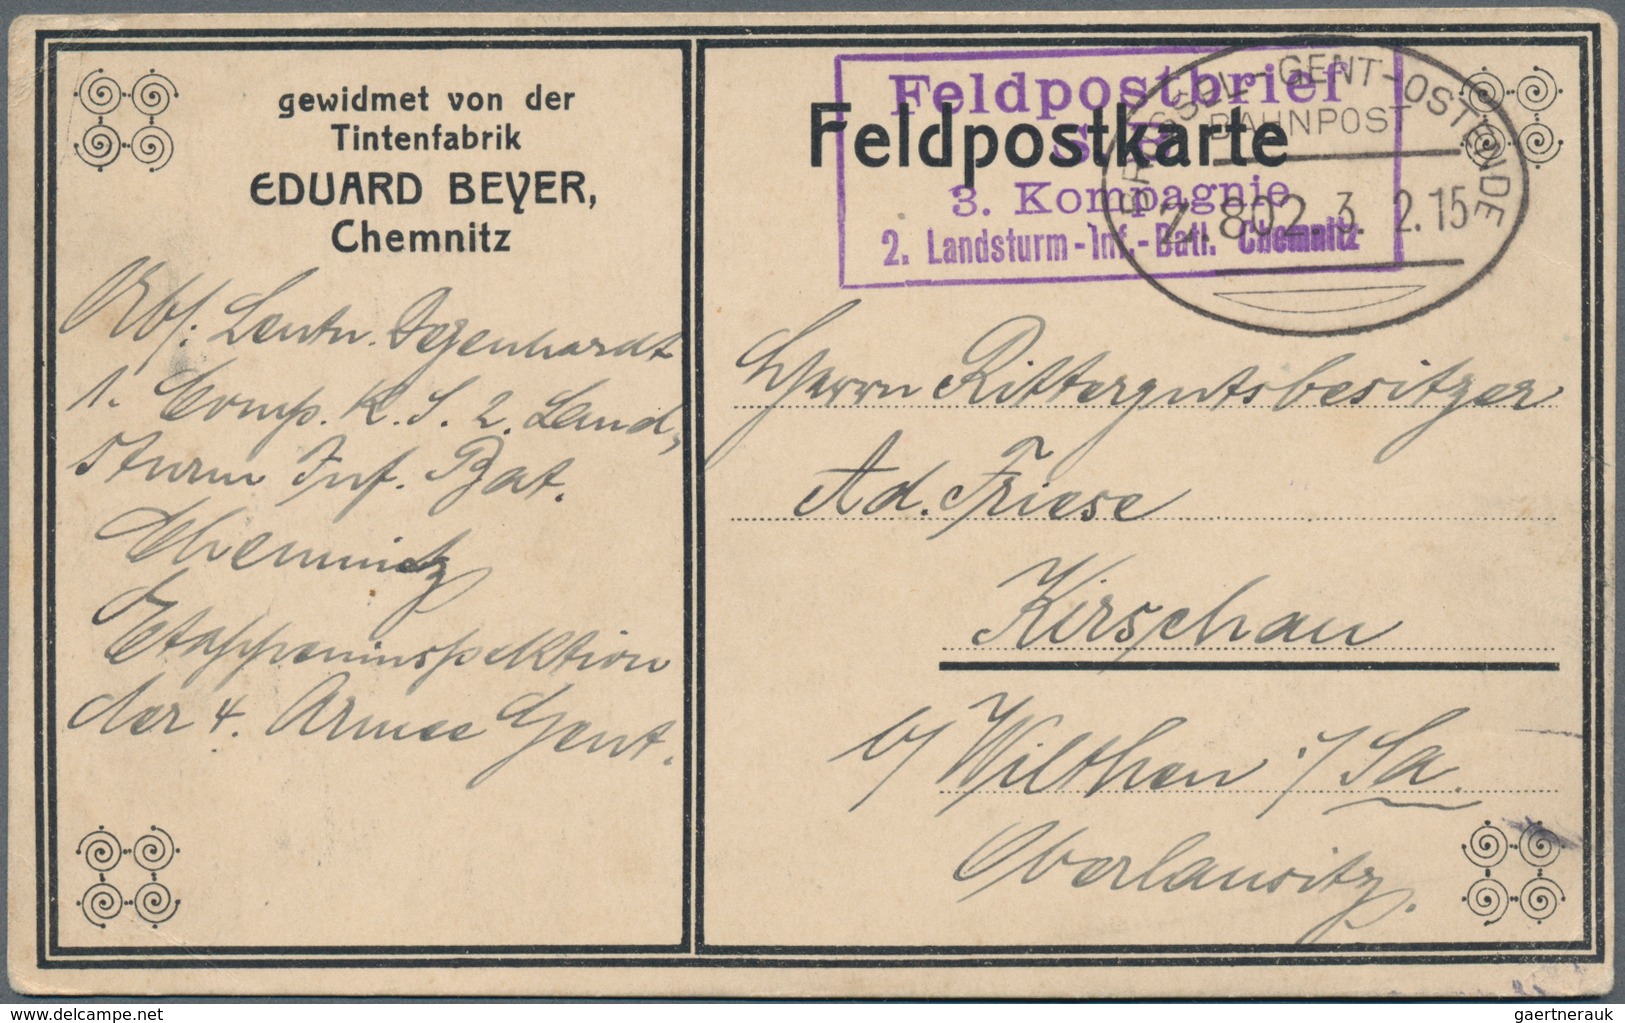 gewidmet von der
Tintenfabrik
EDUARD BEYER,
Chemnitz
Abs: Leutn. Degenhardt
1. Comp. K. S. 2. Land-
sturm Inf. Bat.
Chemnitz
Etappeninspektion
der 4. Armee Gent.
Feldpostkarte
Feldpostbrief
S. B.
3. Kompagnie
2. Landsturm-Inf.-Batl. Chemnitz
BRÜSSEL-GENT-OSTENDE
BAHNPOST
Z. 802. 3. 2. 15
Herrn Rittergutsbesitzer
Ad. Friese
Kirschau
b/ Wilthen i/Sa.
Oberlausitz.
delcampe.net
gaertnerauk